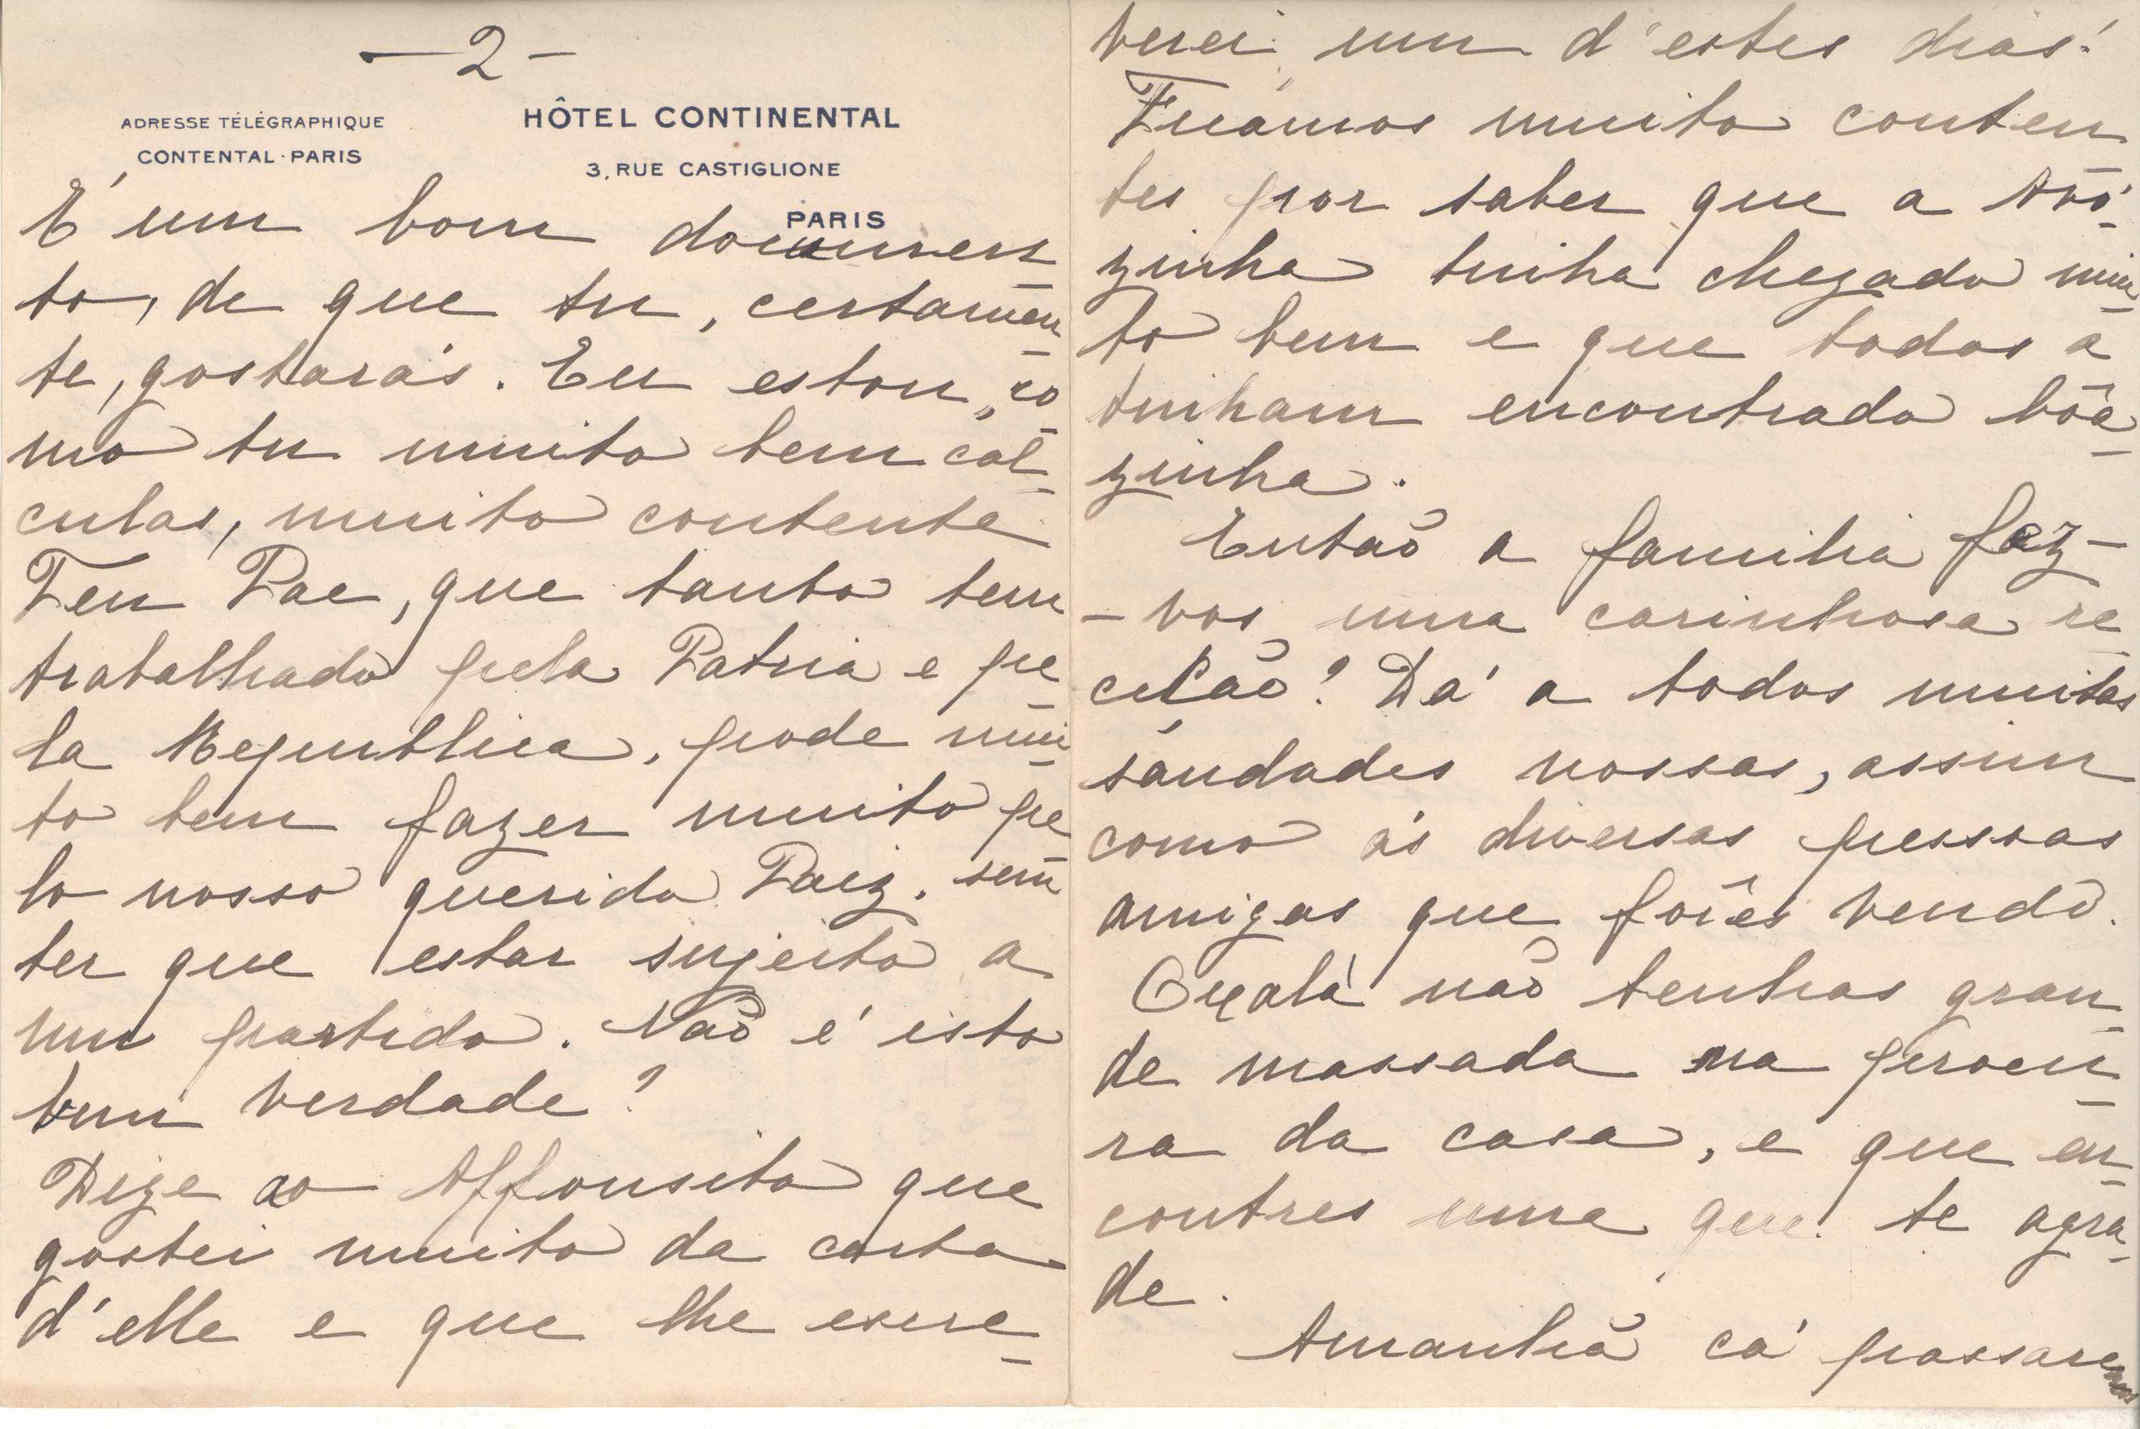 — 2 —
ADRESSE TÉLÉGRAPHIQUE
CONTENTAL · PARIS
HÔTEL CONTINENTAL
3, RUE CASTIGLIONE
PARIS
É um bom documen
to, de que tu, certamen
te, gostarás. Eu estou, co
mo tu muito bem cal
culas, muito contente
Teu Pae, que tanto tem
trabalhado pela Patria e pe
la Republica, pode mui
to bem fazer muito pe
lo nosso querido Paiz, sem
ter que estar sujeito a
um partido. Não é isto
bem verdade?
Dize ao Affonsito que
gostei muito da carta
d'elle e que lhe escre-
verei um d'estes dias!
Ficámos muito conten
tes por saber que a Avó-
zinha tinha chegado mui
to bem e que todos a
tinham encontrado bôa
zinha.
Então a familia fez-
-vos uma carinhosa re
cepção? Dá a todos muitas
saudades nossas, assim
como ás diversas pessoas
amigas que fôres vendo.
Oxalá não tenhas gran
de massada na procu
ra da casa, e que en
contres uma que te agra
de.
Amanhã cá passaremos